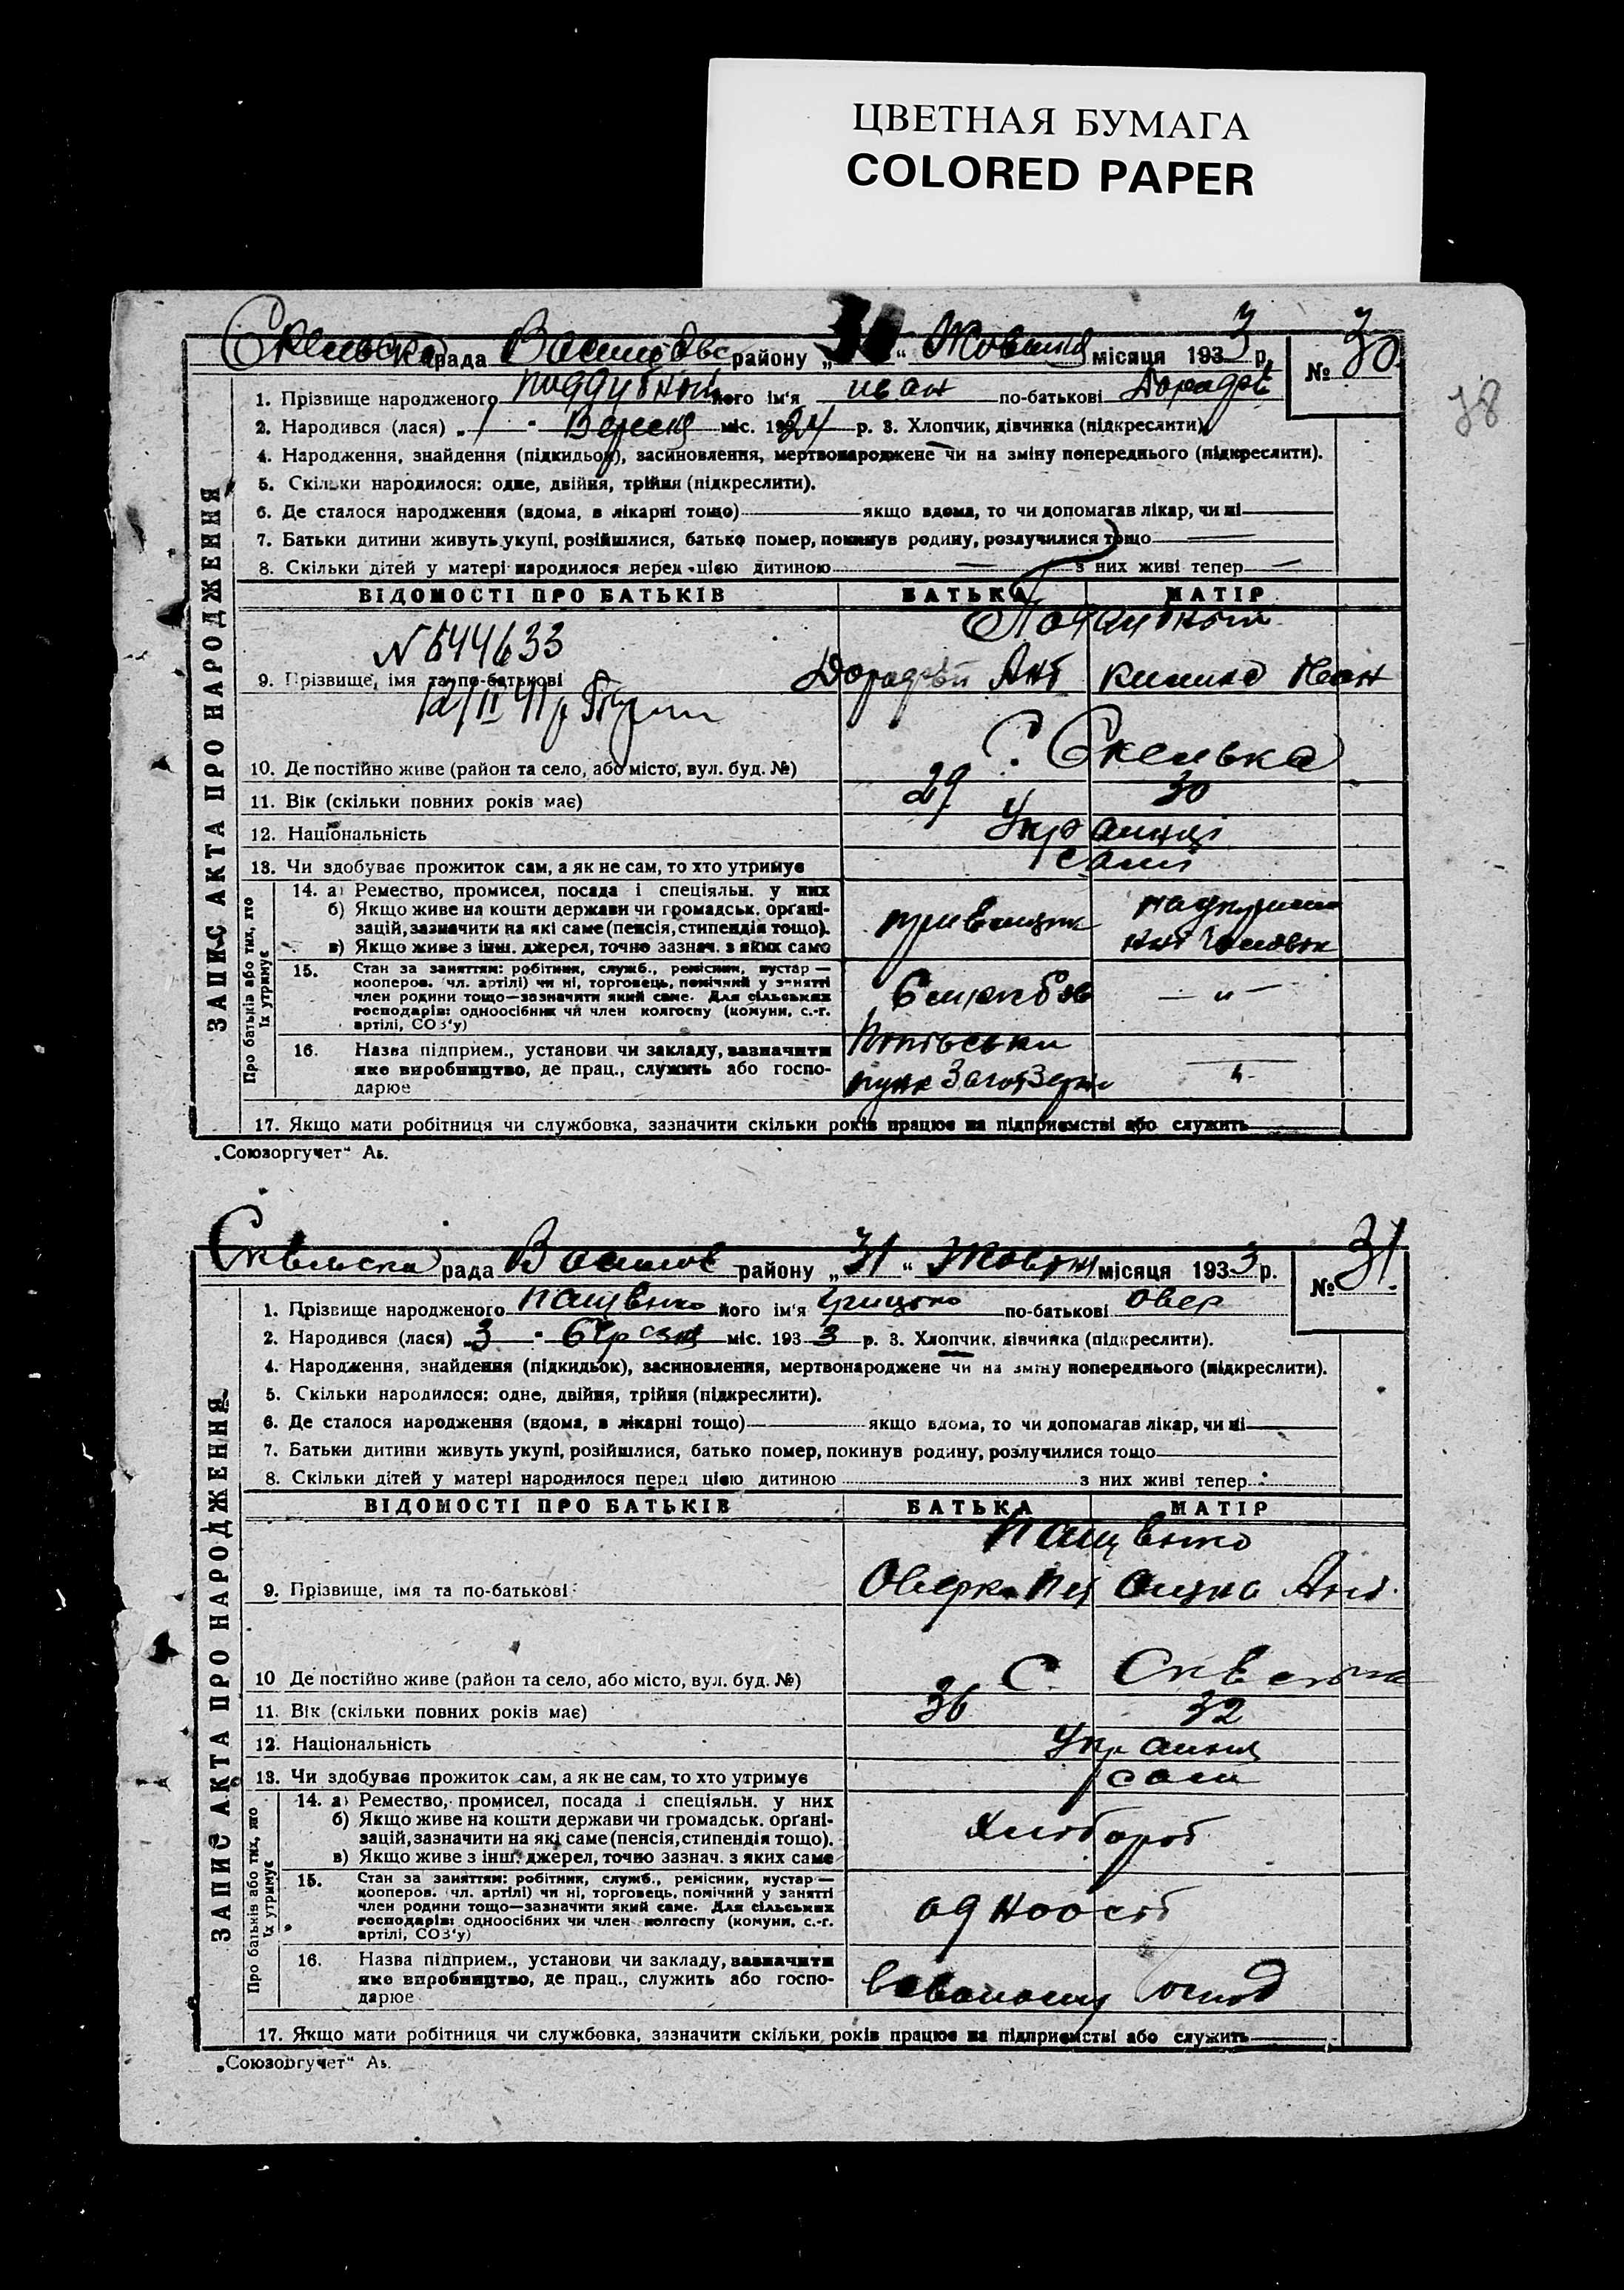 ЦВЕТНАЯ БУМАГА
COLORED PAPER
78
Скельська рада району „31“ Жовтня місяця 1933 р. № 30
1. Прізвище народженого Поддубний його ім'я иван по-батькові
2. Народився (лася) „1“ Вересня міс. 1924 р. 3. Хлопчик, дівчинка (підкреслити).
4. Народження, знайдення (підкидьок), засиновлення, мертвонароджене чи на зміну попереднього (підкреслити).
5. Скільки народилося: одне, двійня, трійня (підкреслити).
6. Де сталося народження (вдома, в лікарні тощо) — якщо вдома, то чи допомагав лікар, чи ні —
7. Батьки дитини живуть укупі, розійшлися, батько помер, покинув родину, розлучилися тощо —
8. Скільки дітей у матері народилося перед цією дитиною — з них живі тепер —
ВІДОМОСТІ ПРО БАТЬКІВ БАТЬКА МАТІР
N 544633
9. Прізвище, імя та по-батькові Ант Иван
10. Де постійно живе (район та село, або місто, вул. буд. №) С. Скелька
11. Вік (скільки повних років має) 29 30
12. Національність Українці
13. Чи здобуває прожиток сам, а як не сам, то хто утримує самі
14. а) Ремество, промисел, посада і спеціяльн. у них
б) Якщо живе на кошти держави чи громадськ. органі-
зацій, зазначити на які саме (пенсія, стипендія тощо).
в) Якщо живе з інш. джерел, точно зазнач. з яких саме
15. Стан за заняттям: робітник, служб., ремісник, кустар —
кооперов. (чл. артілі) чи ні, торговець, помічний у занятті
член родини тощо—зазначити який саме. Для сільських
господарів: одноосібник чи член колгоспу (комуни, с.-г.
артілі, СОЗ'у) — " —
16. Назва підприєм., установи чи закладу, зазначити
яке виробництво, де прац., служить або госпо-
дарює
17. Якщо мати робітниця чи службовка, зазначити скільки років працює на підприємстві або служить —
ЗАПИС АКТА ПРО НАРОДЖЕННЯ
Про батьків або тих, хто їх утримує
„Союзоргучет“ Аь.
рада району „31“ Жовтня місяця 1933 р. № 31
1. Прізвище народженого Пащенко його ім'я Грицько по-батькові Овер
2. Народився (лася) „3“ березня міс. 1933 р. 3. Хлопчик, дівчинка (підкреслити).
4. Народження, знайдення (підкидьок), засиновлення, мертвонароджене чи на зміну попереднього (підкреслити).
5. Скільки народилося: одне, двійня, трійня (підкреслити).
6. Де сталося народження (вдома, в лікарні тощо) — якщо вдома, то чи допомагав лікар, чи ні —
7. Батьки дитини живуть укупі, розійшлися, батько помер, покинув родину, розлучилися тощо
8. Скільки дітей у матері народилося перед цією дитиною з них живі тепер
ВІДОМОСТІ ПРО БАТЬКІВ БАТЬКА МАТІР
9. Прізвище, імя та по-батькові
10 Де постійно живе (район та село, або місто, вул. буд. №) С.
11. Вік (скільки повних років має) 36 32
12. Національність
13. Чи здобуває прожиток сам, а як не сам, то хто утримує сами
14. а) Ремество, промисел, посада і спеціяльн. у них
б) Якщо живе на кошти держави чи громадськ. органі-
зацій, зазначити на які саме (пенсія, стипендія тощо).
в) Якщо живе з інш. джерел, точно зазнач. з яких саме
Хлібороб
15. Стан за заняттям: робітник, служб., ремісник, кустар —
кооперов. (чл. артілі) чи ні, торговець, помічний у занятті
член родини тощо—зазначити який саме. Для сільських
господарів: одноосібних чи член колгоспу (комуни, с.-г.
артілі, СОЗ'у)
одноосіб
16. Назва підприєм., установи чи закладу, зазначити
яке виробництво, де прац., служить або госпо-
дарює
17. Якщо мати робітниця чи службовка, зазначити скільки років працює на підприємстві або служить —
ЗАПИС АКТА ПРО НАРОДЖЕННЯ
Про батьків або тих, хто їх утримує
„Союзоргучет“ Аь.